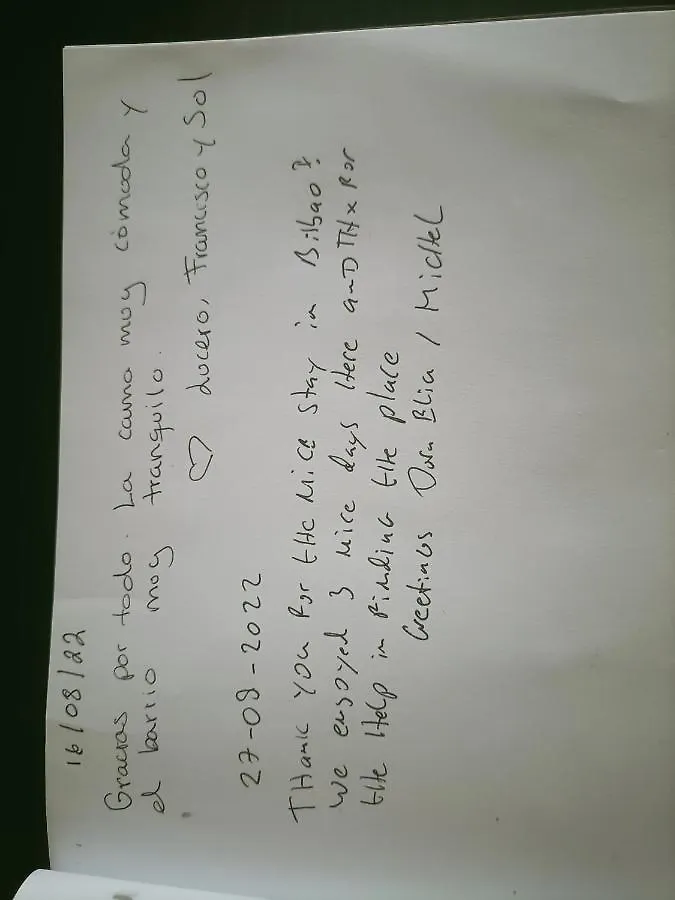 16/08/22
Gracias por todo. La cama muy cómoda y
el barrio muy tranquilo.
♡ Lucero, Francisco y Sol
27-08-2022
THank you For tHe Nice stay in Bilbao!
We enjoyed 3 nice days Here anD THx For
tHe Help in FindinG tHe place
GreetinGs / MicHel